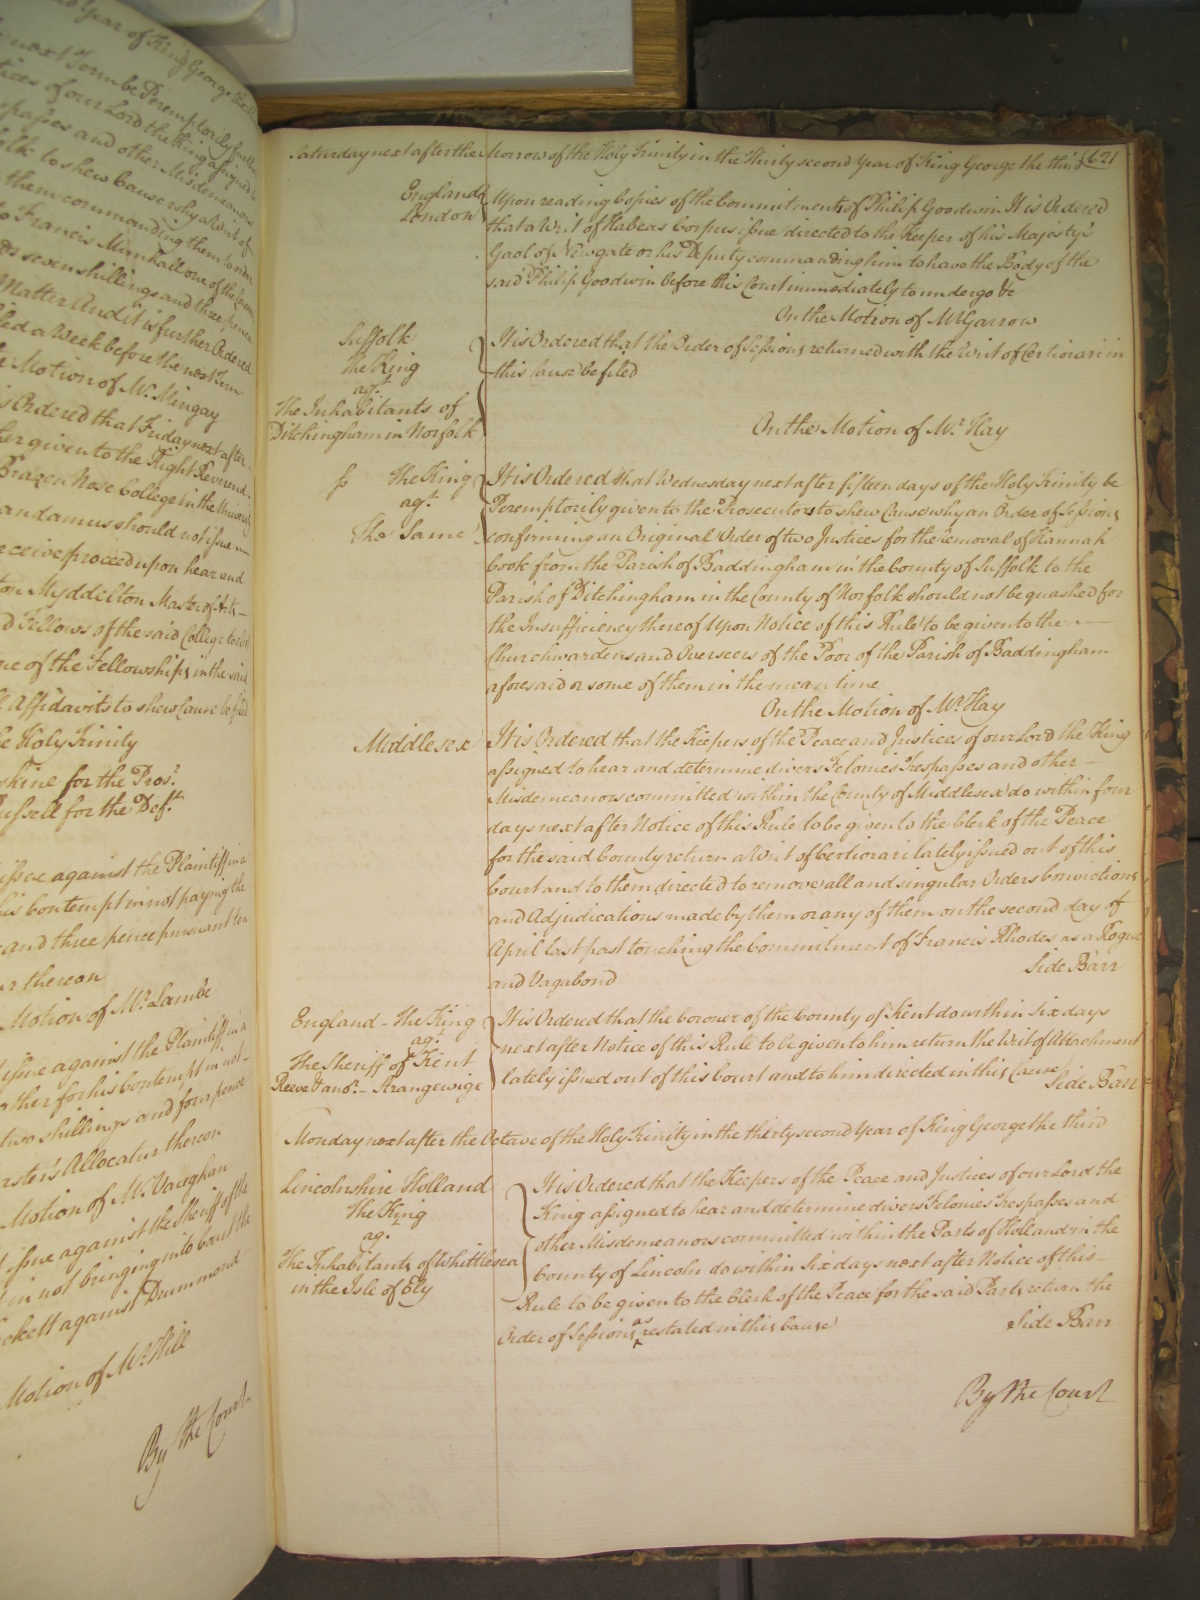 Year of King George the
next Term be Peremptorily
tices of our Lord the King assigned
spasses and other Misdemeanors
olk to shew Cause why a Writ of
them commanding them to
to Francis Minhall one of the
seven shillings and three pence
Matter And it is further Ordered
led a Week before the next Term
Motion of Mr. Mingay
is Ordered that Friday next after
her given to the Right Reverend
Brazen Nose College in the
andamus should not issue
receive proceed upon hear and
ton Myddelton Master of Arts
d Fellows of the said College to
ne of the Fellowships in the said
Affidavits to shew Cause be filed
Holy Trinity
skine for the Pros.r
ussell for the Def.t
issue against the Plaintiff in a
his Contempt in not paying the
and three pence pursuant to a
r thereon
Motion of Mr. Lambe
issue against the Plaintiff in a
other for his Contempt in not
two shillings and four pence
aster's Allocatur thereon
Motion of Mr. Vaughan
issue against the Sheriff of the
in not bringing into Court the
ockett against Drummond
Motion of Mr. Hill
By the Court
Saturday next after the Morrow of the Holy Trinity in the Thirty second Year of King George the third 621
England London } Upon reading Copies of the Commitments of Philip Goodwin It is Ordered
that a Writ of Habeas Corpus issue directed to the Keeper of his Majesty's
Gaol of Newgate or his Deputy commanding him to have the Body of the
said Philip Goodwin before this Court immediately to undergo &c
On the Motion of Mr Garrow
Suffolk
The King
ag.t
The Inhabitants of
Ditchingham in Norfolk
It is Ordered that the Order of Sessions returned with the Writ of Certiorari in
this Cause be filed
On the Motion of Mr. Hay
fs The King
ag.t
The Same
It is Ordered that Wednesday next after fifteen days of the Holy Trinity be
Peremptorily given to the Prosecutors to shew Cause why an Order of Sessions
confirming an Original Order of two Justices for the removal of Hannah
book from the Parish of Baddingham in the County of Suffolk to the
Parish of Ditchingham in the County of Norfolk should not be quashed for
the Insufficiency thereof Upon Notice of this Rule to be given to the
Churchwardens and Overseers of the Poor of the Parish of Baddingham
aforesaid or some of them in the mean time
On the Motion of Mr. Hay
Middlesex It is Ordered that the Keepers of the Peace and Justices of our Lord the King
assigned to hear and determine divers Felonies Trespasses and other
Misdemeanors committed within the County of Middlesex do within four
days next after Notice of this Rule to be given to the Clerk of the Peace
for the said County return a Writ of Certiorari lately issued out of this
Court and to them directed to remove all and singular Orders Convictions
and Adjudications made by them or any of them on the second day of
April last past touching the Commitment of Francis Rhodes as a Rogue
and Vagabond Side Barr
England - The King
ag.t
The Sheriff of Kent
Reeve & ano.r - Arangewige
It is Ordered that the Coroner of the County of Kent do within six days
next after Notice of this Rule to be given to him return the Writ of Attachment
lately issued out of this Court and to him directed in this Cause Side Barr
Monday next after the Octave of the Holy Trinity in the thirty second Year of King George the third
Lincolnshire Holland
The King
ag.
The Inhabitants of Whittlesea
in the Isle of Ely
It is Ordered that the Keepers of the Peace and Justices of our Lord the
King assigned to hear and determine divers Felonies Trespasses and
other Misdemeanors committed within the Parts of Holland in the
County of Lincoln do within Six days next after Notice of this
Rule to be given to the Clerk of the Peace for the said Parts return the
Order of Sessions as restated in this Cause Side Barr
By the Court